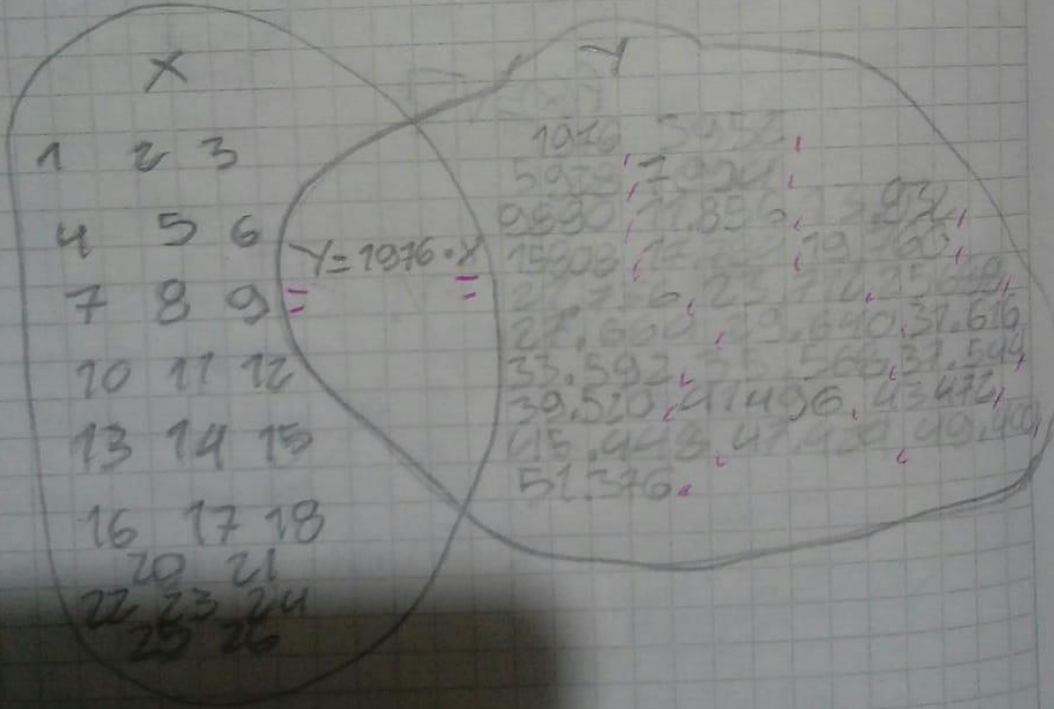 X
1 2 3
4 5 6
7 8 9
10 11 12
13 14 15
16 17 18
20 21
22 23 24
25 26
Y=1976·X
Y
1976, 3952,
7904,
11.856,
15808, 19.760,
23.712, 25.688,
27.664, 29.640, 31.616
33.592, 35.568, 37.544
39.520, 41496, 43472,
45.448, 47.424, 49.400,
51.376.